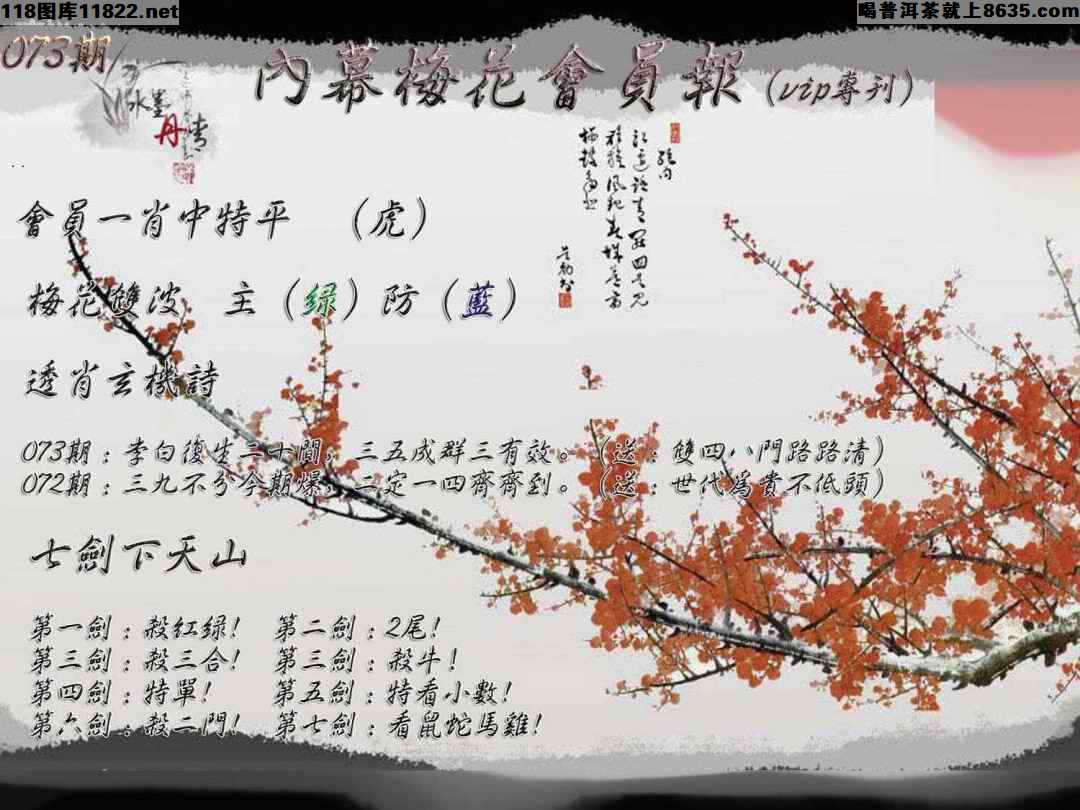 118图库11822.net
喝普洱茶就上8635.com
073期
內幕梅花會員報(vip專刊)
水墨
丹青
會員一肖中特平 （虎）
梅花雙波 主（綠）防（藍）
透肖玄機詩
073期：李白復生二十間，三五成群三有效。（送：雙四八門路路清）
072期：三九不分今期爆，二定一四齊齊到。（送：世代為貴不低頭）
七劍下天山
第一劍：殺紅綠！ 第二劍：2尾！
第三劍：殺三合！ 第三劍：殺牛！
第四劍：特單！ 第五劍：特看小數！
第六劍：殺二門！ 第七劍：看鼠蛇馬雞！